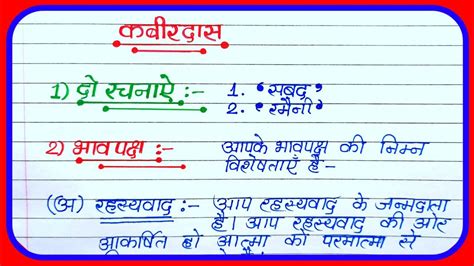 कबीरदास
1) दो रचनाऐ :- 1. "सबद"
2. "रमैनी"
2) भावपक्ष :- आपके भावपक्ष की निम्न
विशेषताएँ है-
(अ) रहस्यवाद :- आप रहस्यवाद के जन्मदाता
है। आप रहस्यवाद की ओर
आकर्षित हो आत्मा को परमात्मा से